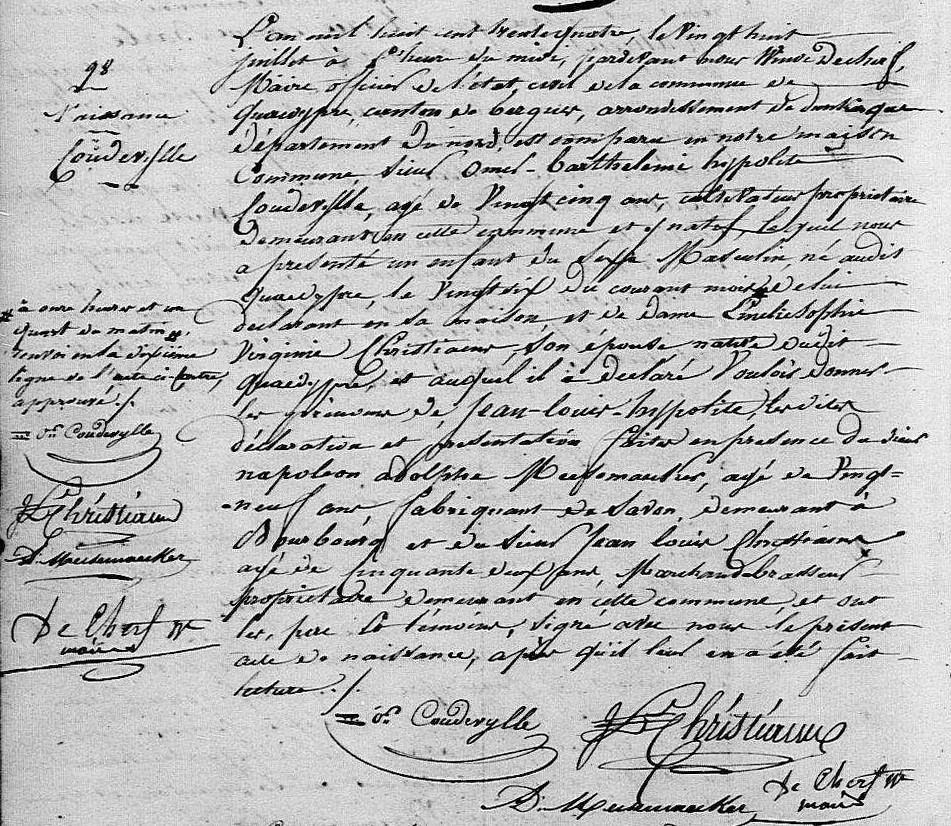 98
Naissance
Coudeville
L'an mil huit cent trente quatre, le vingt huit
juillet à heure du midi, pardevant nous Decherf,
Maire officier de l'état civil de la commune de
Quaedypre, canton de bergues, arrondissement de dunkerque
département du nord, est comparu en notre maison
Commune Sieur Omer-barthelemi hypolite
Coudeville, agé de Vingt cinq ans, cultivateur proprietaire
demeurant en cette commune et y natif, lequel nous
a présenté un enfant du Sexe Masculin né audit
quaedypre, le Vingt six du courant mois # de lui
déclarant en sa maison, et de dame Emelie Sophie
Virginie Christiaens, son épouse native dudit
quaedypre, et auquel il a déclaré Vouloir donner
les prénoms de Jean-louis-hyppolite, les dites
déclaration et présentation faites en présence du sieur
napoleon adolphe Meesemaecker, agé de Vingt-
neuf ans fabriquant de Savon, demeurant à
Bourbourg et du Sieur Jean louis Christiaens
agé de Cinquante deux ans, Marchand brasseur
proprietaire demeurant en cette commune, et ont
les, pere et témoins, signé avec nous le présent
acte de naissance, après qu'il leur en a été fait
lecture ./.
# à onze heures et un
quart du matin #,
renvoi en la dixième
ligne de l'acte ci-contre,
approuvé ./.
on Coudevylle
Christiaens
A. Meesemaecker
De Cherf
maire
on Coudevylle
Christiaens
A. Meesemaecker
De Cherf
maire